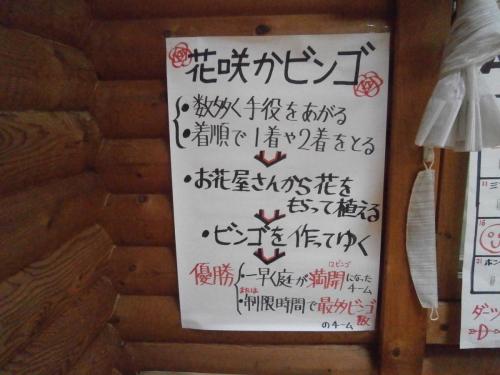 花咲かビンゴ
・数多く手役をあがる
・着順で1着や2着をとる
・お花屋さんから花を
もらって植える
・ビンゴを作ってゆく
優勝
・一早く庭が満開になった
12ビンゴ
チーム
または
・制限時間で最多ビンゴ
数
のチーム
ダーツ